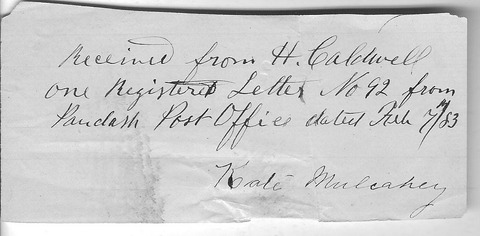 Received from H. Caldwell
one Registered Letter No 92 from
Pandash Post Office dated Feb 7/83
Kate Mulcahey